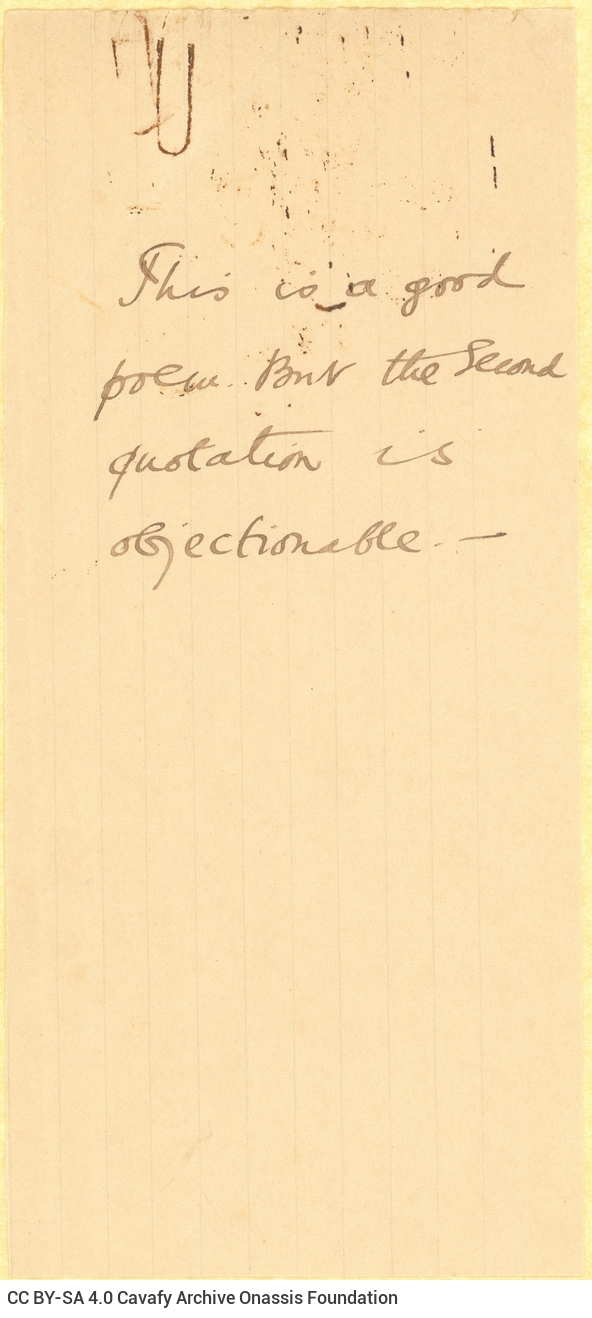 This is a good
poem. But the Second
quotation is
objectionable. —
CC BY-SA 4.0 Cavafy Archive Onassis Foundation